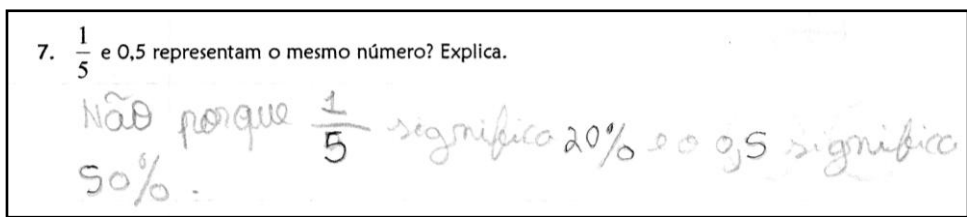 7. 1/5 e 0,5 representam o mesmo número? Explica.
Não porque 1/5 significa 20% e o 0,5 significa
50%.